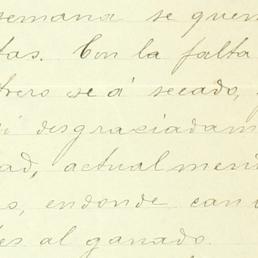 semana se quem
tas. Con la falta
trero se á secado,
i desgraciadam
ad, actualmen
s, endonde can
es al ganado.